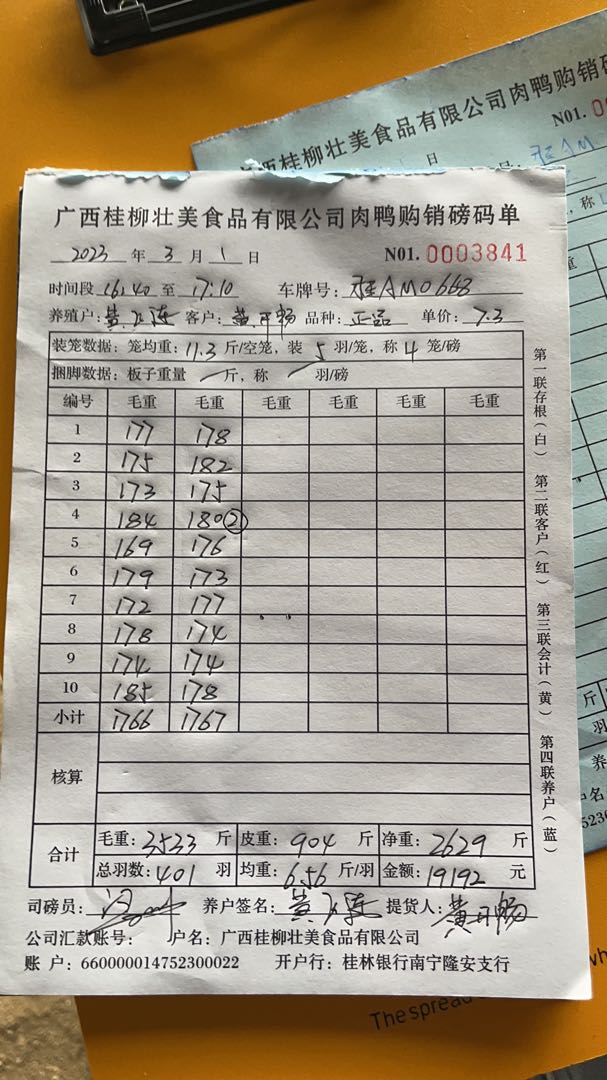 广西桂柳壮美食品有限公司肉鸭购销磅码单
2023 年 3 月 1 日 N01. 0003841
时间段 16:40 至 17:10 车牌号: 桂AM0668
养殖户: 黄飞连 客户: 黄开畅 品种: 正品 单价: 7.3
装笼数据: 笼均重: 11.3 斤/空笼, 装 5 羽/笼, 称 4 笼/磅
捆脚数据: 板子重量 — 斤, 称 — 羽/磅
编号 毛重 毛重 毛重 毛重 毛重 毛重
1 177 178
2 175 182
3 173 175
4 184 180 ㉑
5 169 176
6 179 173
7 172 177
8 178 174
9 174 174
10 185 178
小计 1766 1767
核算
合计
毛重: 3533 斤 皮重: 904 斤 净重: 2629 斤
总羽数: 401 羽 均重: 6.56 斤/羽 金额: 19192 元
司磅员: 养户签名: 黄飞连 提货人: 黄开畅
公司汇款账号: 户名: 广西桂柳壮美食品有限公司
账 户: 660000014752300022 开户行: 桂林银行南宁隆安支行
第一联存根(白) 第二联客户(红) 第三联会计(黄) 第四联养户(蓝)
广西桂柳壮美食品有限公司肉鸭购销磅
日 N01. 0
号: 桂AM
称
斤
羽
养
户名
5230
The spread
wh